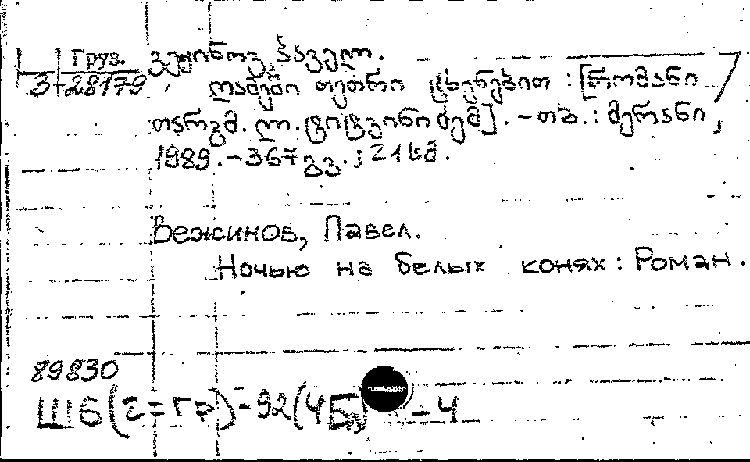 Груз.
3-28179
ვეჟინოვ, პაველ.
ღამეში თეთრი ცხენებით : [რომანი /
თარგმ. ლ. ციცქვინიძემ]. - თბ. : მერანი,
1989. - 367 გვ. ; 21 სმ.
Вежинов, Павел.
Ночью на белых конях : Роман.
89830
Ш6(2=Гр)-92(4Б) - 4